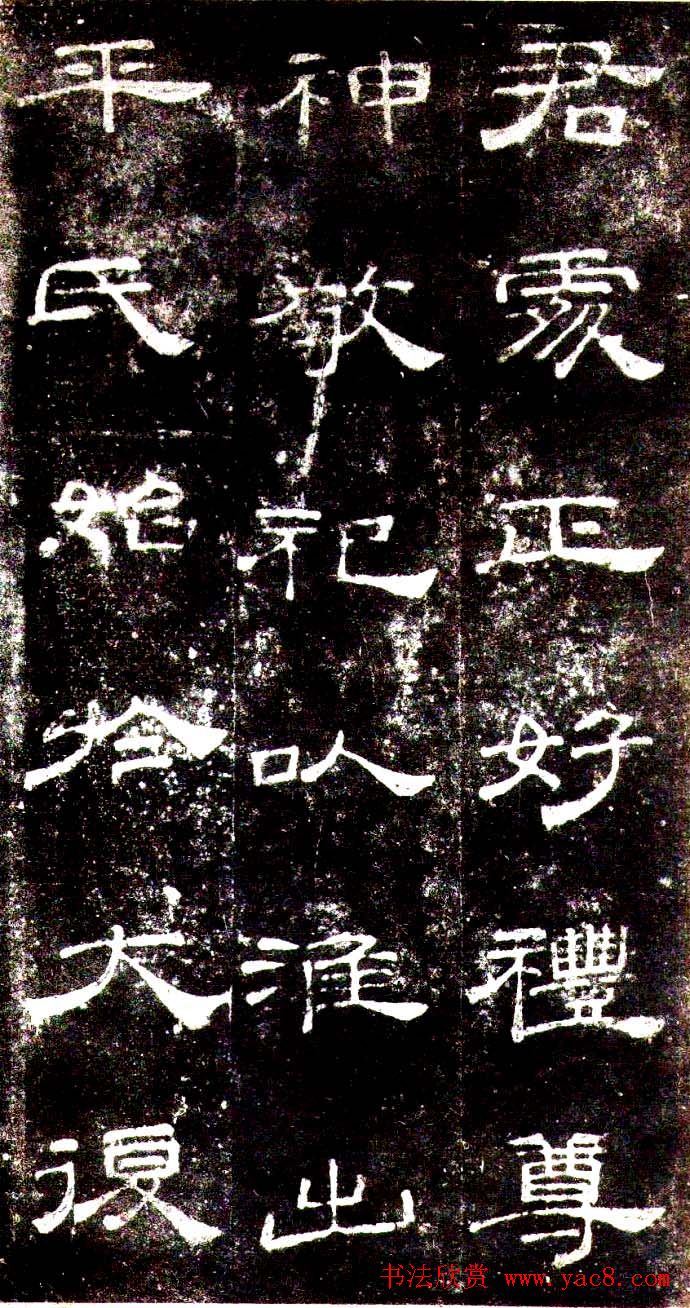 君處正好禮尊
神敬祀以淮出
平氏始於大復
书法欣赏 www.yac8.com